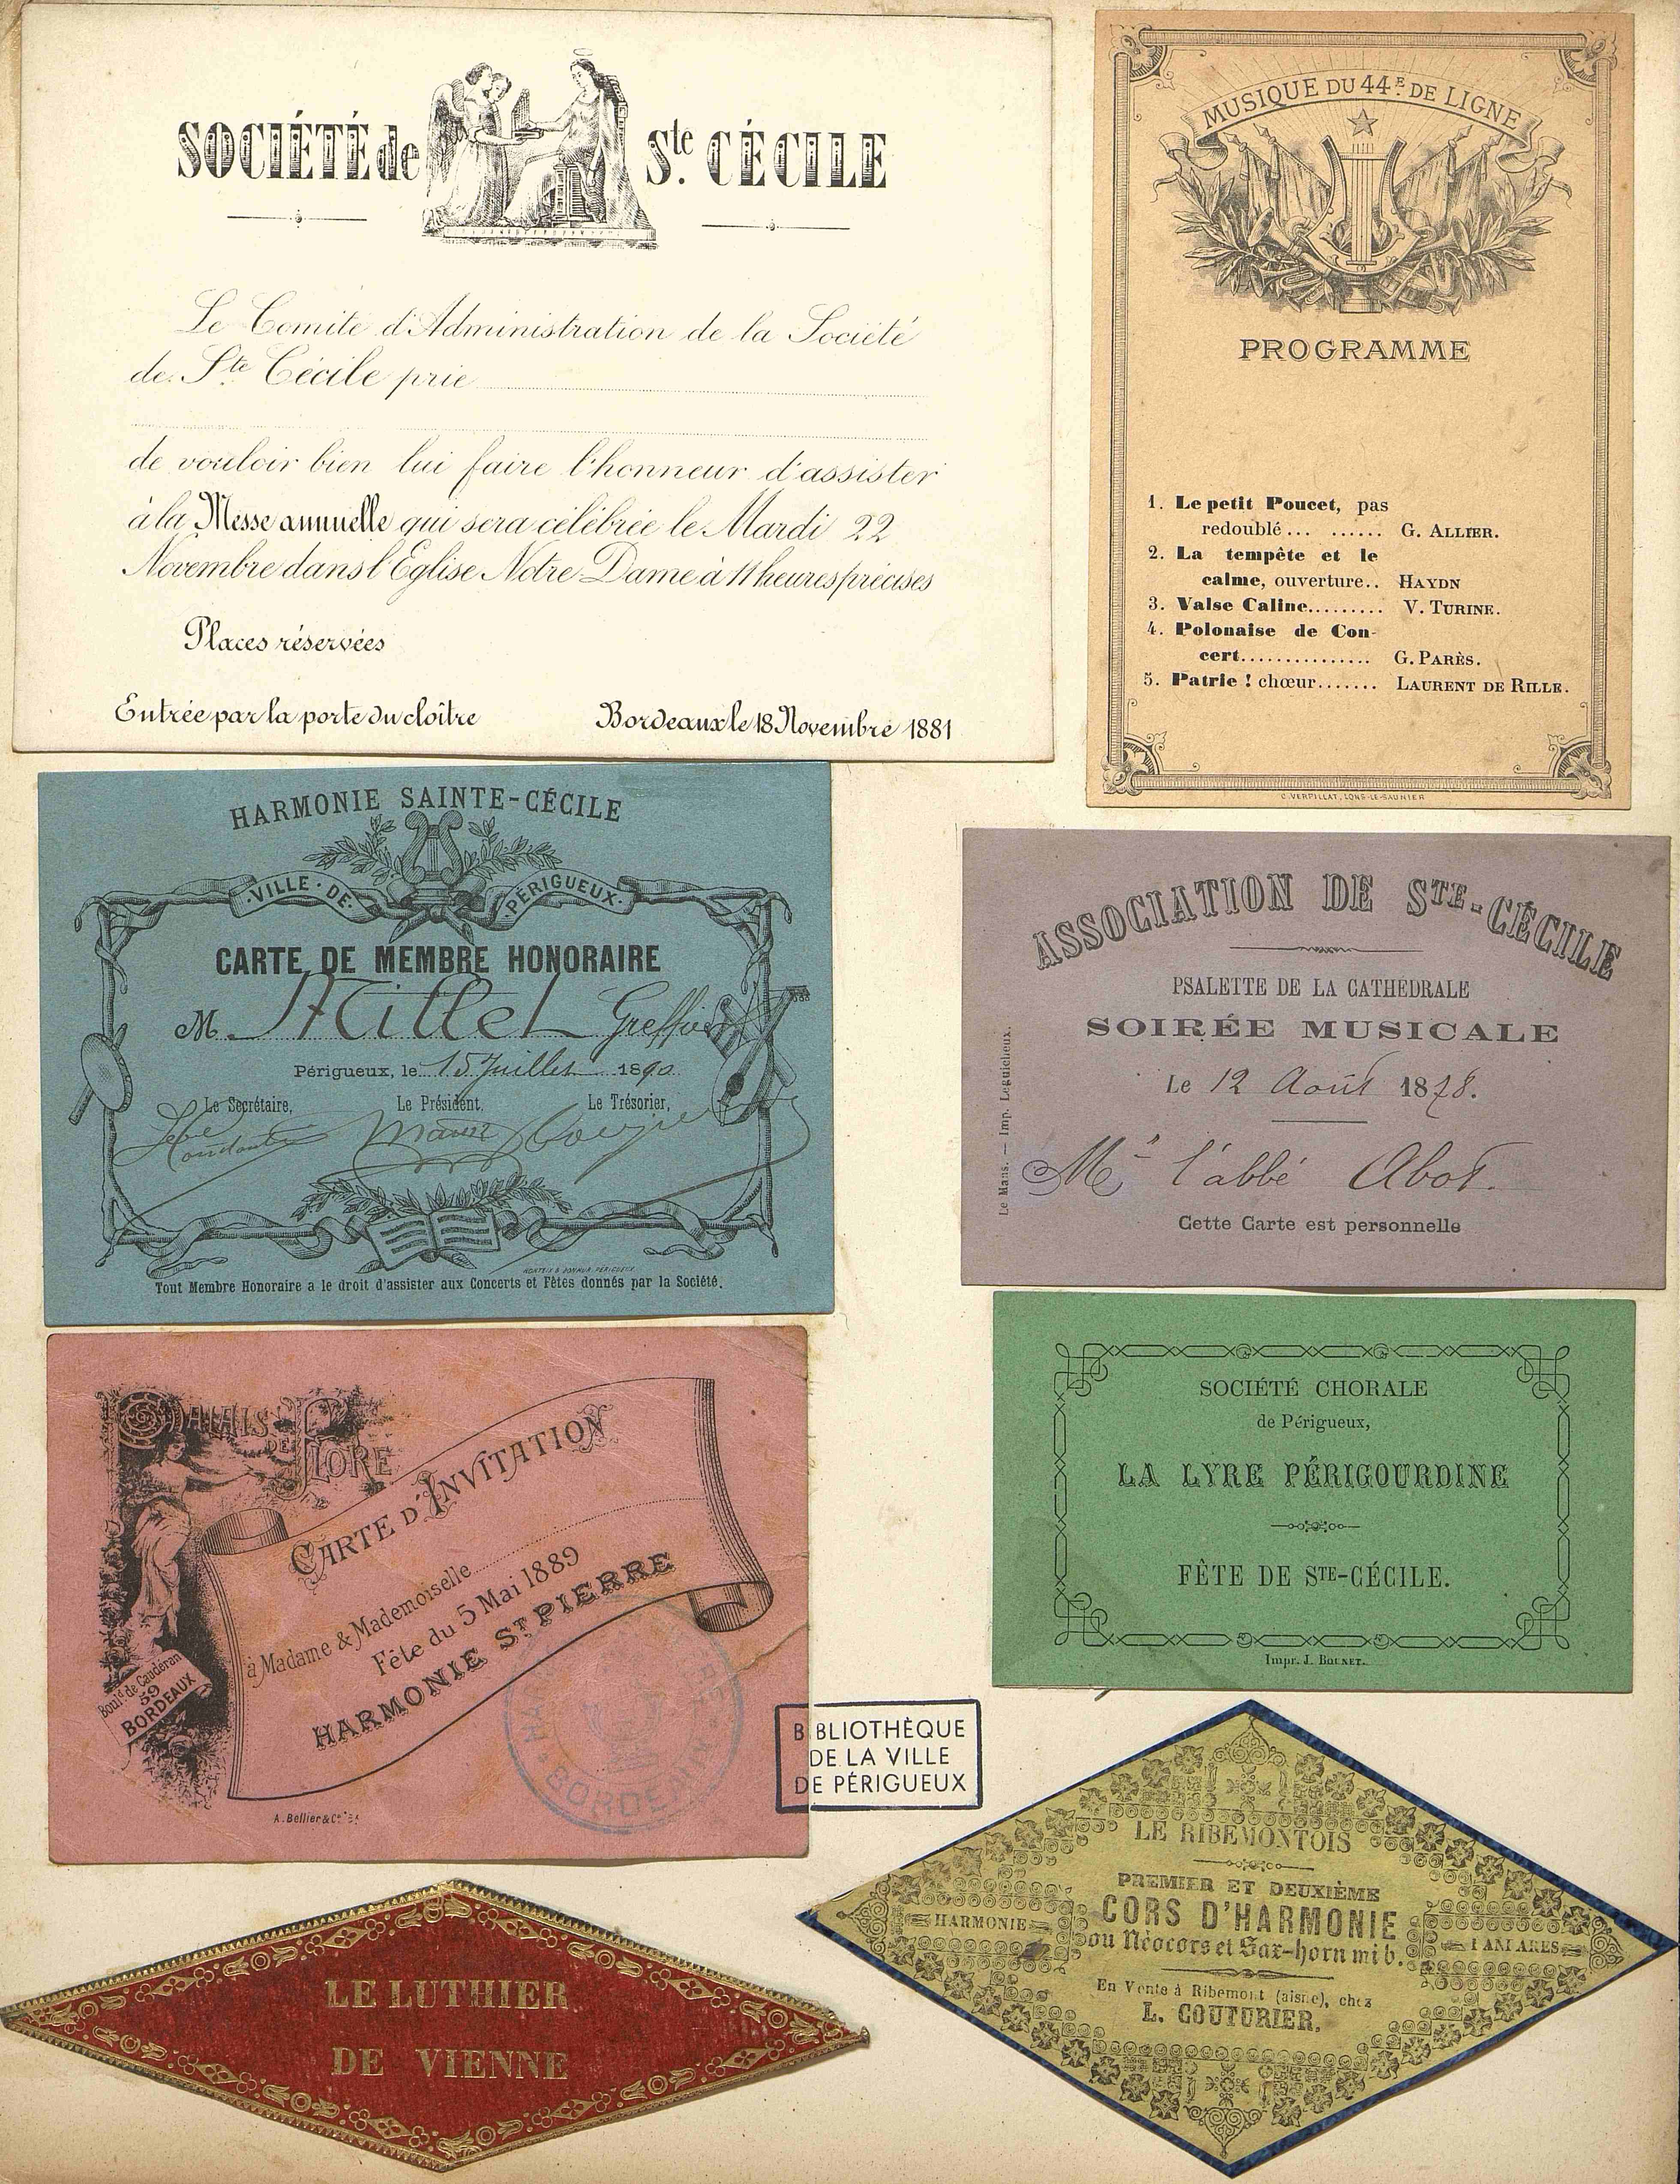 SOCIÉTÉ de Ste CÉCILE
Le Comité d'Administration de la Société
de Ste Cécile prie
de vouloir bien lui faire l'honneur d'assister
à la Messe annuelle qui sera célébrée le Mardi 22
Novembre dans l'Eglise Notre Dame à 11 heures précises
Places réservées
Entrée par la porte du cloître
Bordeaux le 18 Novembre 1881
MUSIQUE DU 44E DE LIGNE
PROGRAMME
1. Le petit Poucet, pas
redoublé... ...... G. ALLIER.
2. La tempête et le
calme, ouverture.. HAYDN
3. Valse Caline......... V. TURINE.
4. Polonaise de Con-
cert............... G. PARÈS.
5. Patrie ! chœur....... LAURENT DE RILLE.
C. VERPILLAT, LONS-LE-SAUNIER
HARMONIE SAINTE-CÉCILE
VILLE · DE · PÉRIGUEUX
CARTE DE MEMBRE HONORAIRE
M. Millet Greffier
Périgueux, le 15 Juillet 1890
Le Secrétaire, Le Président, Le Trésorier,
Tout Membre Honoraire a le droit d'assister aux Concerts et Fêtes donnés par la Société.
ASSOCIATION DE STE-CÉCILE
PSALETTE DE LA CATHÉDRALE
SOIRÉE MUSICALE
Le 12 Août 1878.
Mr l'abbé Abot.
Cette Carte est personnelle
Le Mans. — Imp. Leguicheux.
PALAIS DE FLORE
CARTE D'INVITATION
à Madame & Mademoiselle
Fête du 5 Mai 1889
HARMONIE ST PIERRE
Bould de Caudéran
59
BORDEAUX
A. Bellier & Cie
BORDEAUX
SOCIÉTÉ CHORALE
de Périgueux,
LA LYRE PÉRIGOURDINE
FÊTE DE STE-CÉCILE.
Impr. J. BOUNET.
BIBLIOTHÈQUE
DE LA VILLE
DE PÉRIGUEUX
LE LUTHIER
DE VIENNE
LE RIBEMONTOIS
PREMIER ET DEUXIÈME
CORS D'HARMONIE
ou Néocors et Sax-horn mi b.
HARMONIE
FANFARES
En Vente à Ribemont (aisne), chez
L. COUTURIER.